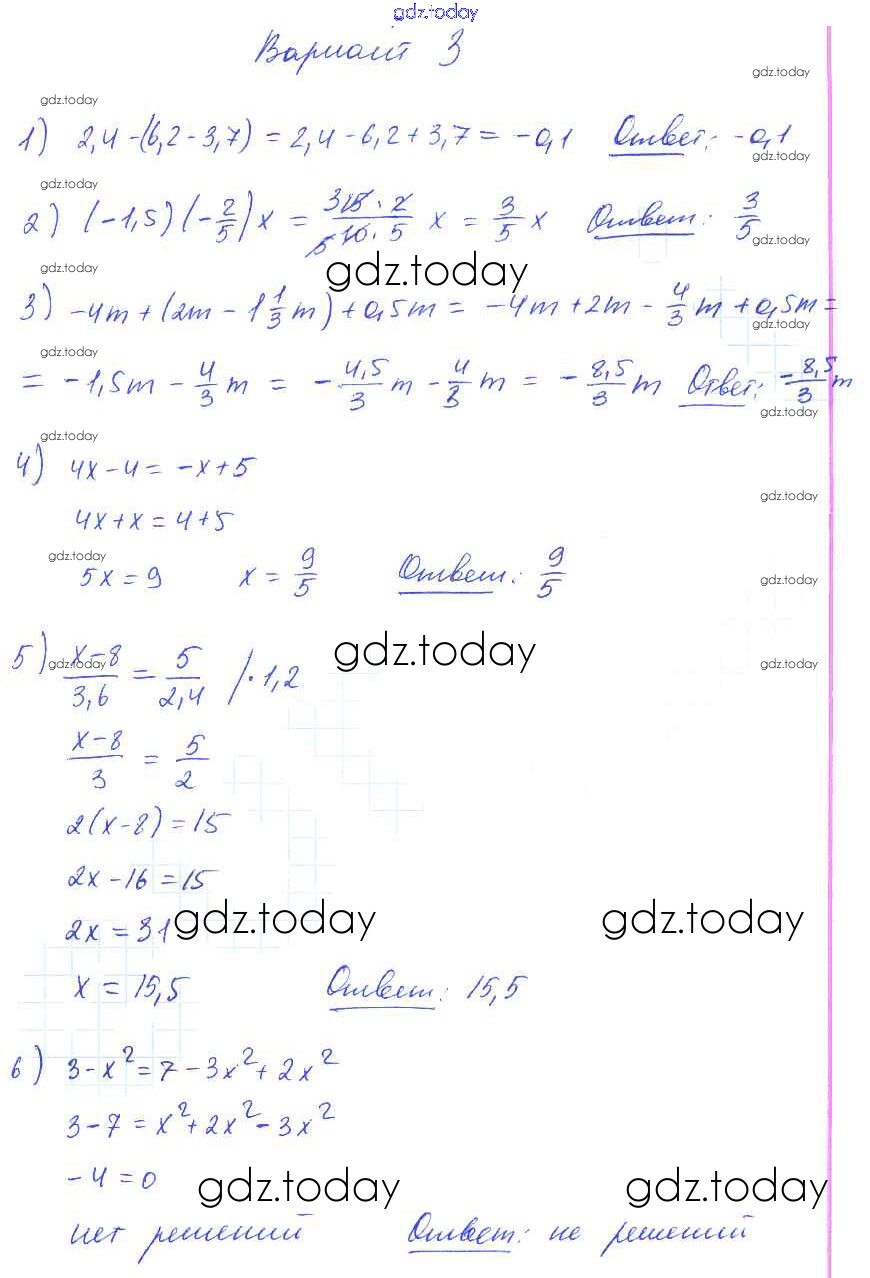 gdz.today
Вариант 3
gdz.today
gdz.today
1) 2,4-(6,2-3,7) = 2,4-6,2+3,7 = -0,1 Ответ: -0,1
gdz.today
gdz.today
2) (-1,5)(-2/5)x = 3 15·2/5 10·5 x = 3/5 x Ответ: 3/5
gdz.today
gdz.today
gdz.today
3) -4m+(2m-1 1/3 m)+0,5m = -4m+2m-4/3 m+0,5m =
gdz.today
gdz.today
= -1,5m-4/3 m = -4,5/3 m-4/3 m = -8,5/3 m Ответ: -8,5/3 m
gdz.today
gdz.today
4) 4x-4 = -x+5
gdz.today
4x+x = 4+5
gdz.today
5x = 9 x = 9/5 Ответ: 9/5
gdz.today
gdz.today
5) x-8/3,6 = 5/2,4 /·1,2
gdz.today
gdz.today
x-8/3 = 5/2
2(x-8) = 15
2x-16 = 15
2x = 31
gdz.today
gdz.today
x = 15,5 Ответ: 15,5
6) 3-x² = 7-3x²+2x²
3-7 = x²+2x²-3x²
-4 = 0
gdz.today
gdz.today
нет решений Ответ: не решений